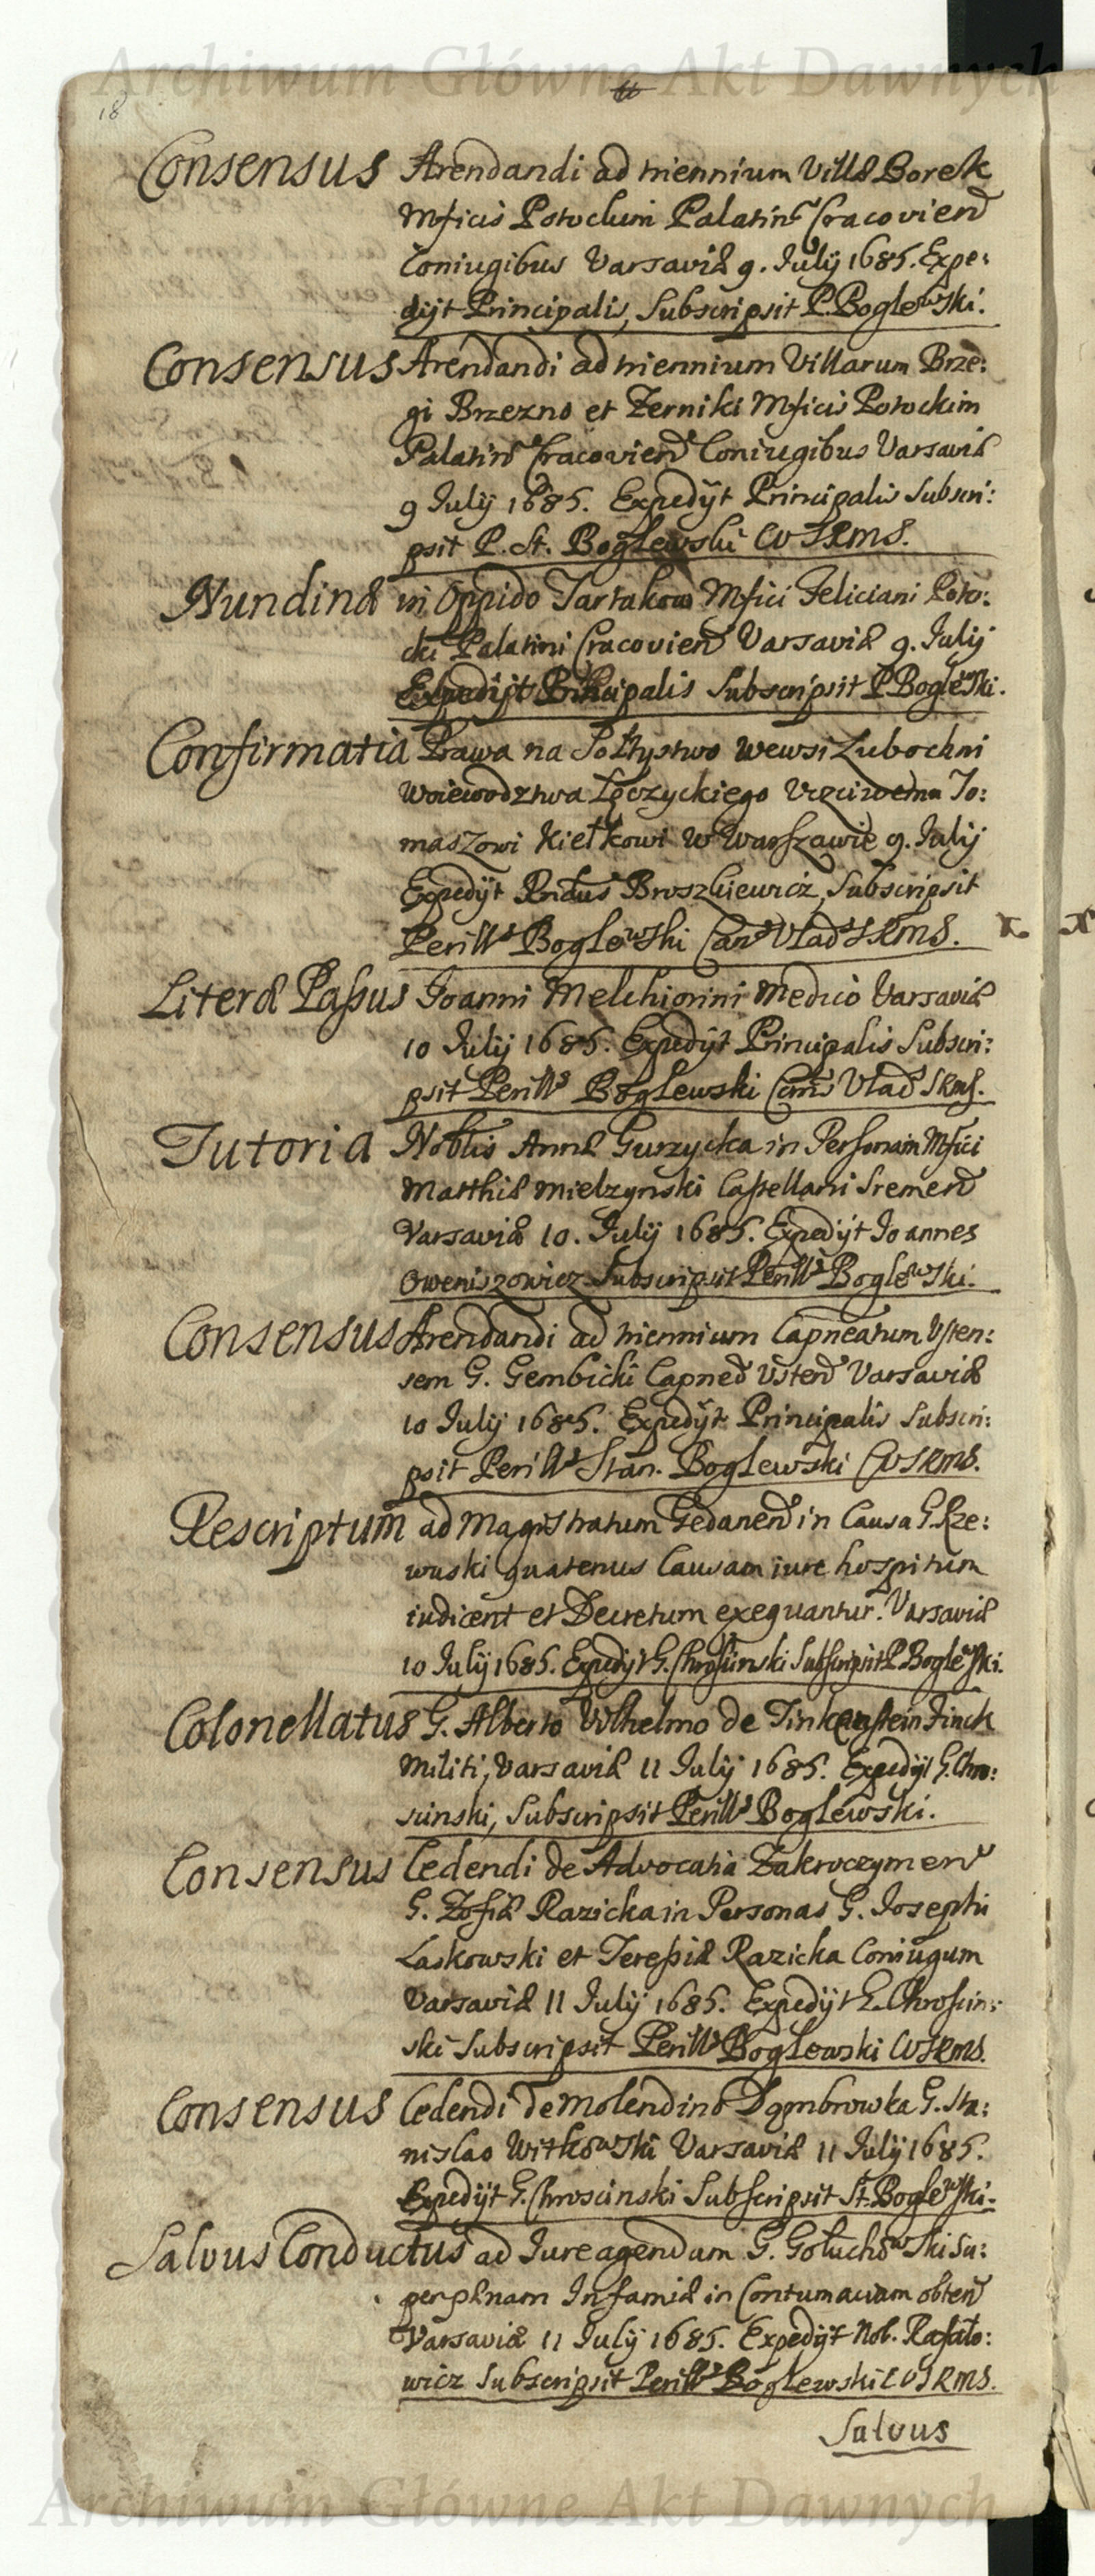 Archiwum Główne Akt Dawnych
18
Consensus Arendandi ad triennium Villæ Borek
Mficis Potockim Palatin Cracovien
Coniugibus Varsaviæ 9. July 1685. Expe:
dijt Principalis, Subscripsit P. Boglewski.
Consensus Arendandi ad triennium Villarum Brze:
gi Brzezno et Zerniki Mficis Potockim
Palatin Cracovien Coniugibus Varsaviæ
9 July 1685. Expedijt Principalis Subscri:
psit P. St. Boglewski CVSRMS.
Nundinæ in Oppido Tartakow Mfici Feliciani Poto:
cki Palatini Cracovien Varsaviæ 9. July
Expedijt Principalis Subscripsit P Boglewski.
Confirmatia Prawa na Sołtystwo wewsi Lubochni
Woiewodztwa Łęczyckiego Uczciwemu To:
maszowi Kiełkowi w Warszawie 9. July
Expedijt Rndus Broszkiewicz, Subscripsit
Perills Boglewski Can Vlad SRMS.
Literæ Paſsus Joanni Melchiorini Medico Varsaviæ
10 July 1685. Expedijt Principalis Subscri:
psit Perills Boglewski Can Vlad SRMS.
Tutoria Noblis Annæ Gurzycka in Personam Mfici
Matthiæ Mielzynski Castellani Sremen
Varsaviæ 10. July 1685. Expedijt Joannes
Oweniszowicz Subscripsit Perills Boglewski.
Consensus Arendandi ad triennium Capneatum Usten:
sem G. Gembicki Capneo Usten Varsaviæ
10 July 1685. Expedijt Principalis Subscri:
psit Perills Stan. Boglewski CVSRMS.
Rescriptum ad Magistratum Gedanen in Causa G. Rze:
wuski quatenus Causam iure hospitum
iudicent et Decretum exequantur. Varsaviæ
10 July 1685. Expedijt G. Chrościnski Subscripsit P. Boglewski.
Colonellatus G. Alberto Vilhelmo de Finkenstein Finck
Militi, Varsaviæ 11 July 1685. Expedijt G. Chro:
scinski, Subscripsit Perills Boglewski.
Consensus Cedendi de Advocatia Zakroczymen
G. Zofiæ Razicka in Personas G. Josephi
Laskowski et Tereſsiæ Razicka Coniugum
Varsaviæ 11 July 1685. Expedijt G. Chroscin:
ski Subscripsit Perills Boglewski CVSRMS.
Consensus Cedendi de Molendino Dąmbrowka G. Sta:
nislao Witkowski Varsaviæ 11 July 1685.
Expedijt G. Chroscinski Subscripsit St. Boglewski.
Salvus Conductus ad Iure agendum G. Gołuchowski su:
per pænam Infamiæ in Contumaciam obten
Varsaviæ 11 July 1685. Expedijt Nob. Rafało:
wicz Subscripsit Perills Boglewski CVSRMS.
Salvus
Archiwum Główne Akt Dawnych